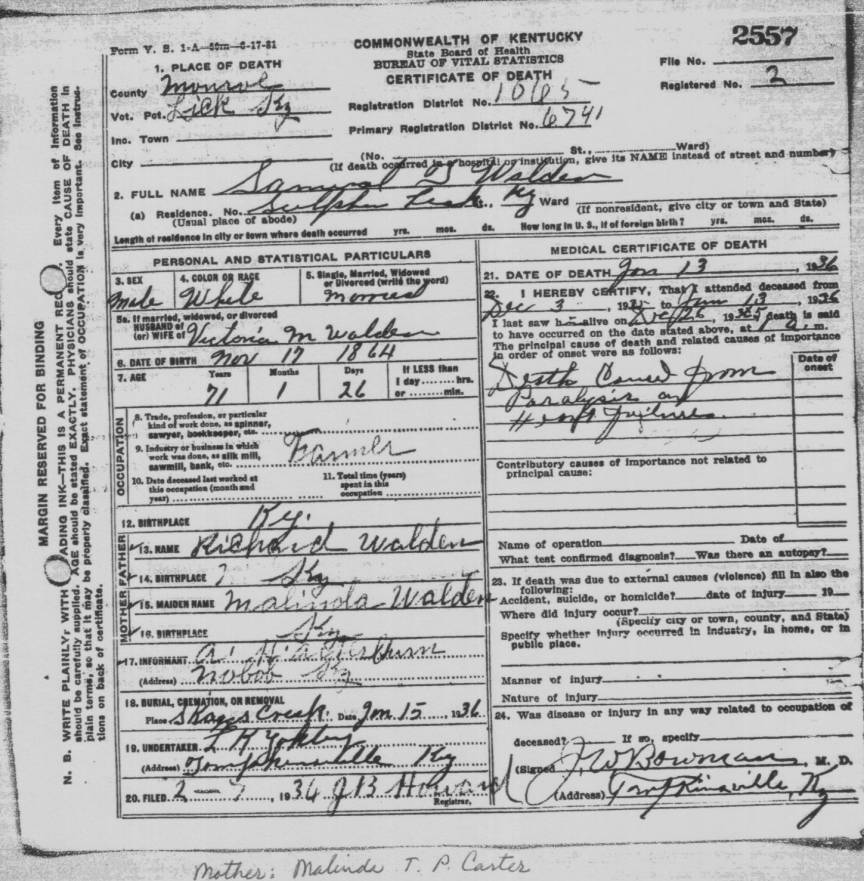 2557
Form V. S. 1-A—50m—6-17-31
COMMONWEALTH OF KENTUCKY
State Board of Health
BUREAU OF VITAL STATISTICS
CERTIFICATE OF DEATH
File No.
Registered No. 2
1. PLACE OF DEATH
County Monroe
Vot. Pct. Lick Ky
Inc. Town
City
Registration District No. 1065
Primary Registration District No. 6741
(No. St., Ward)
(If death occurred in a hospital or institution, give its NAME instead of street and number)
2. FULL NAME Samuel T Walden
(a) Residence. No. Sulphur Lick St., Ky Ward (If nonresident, give city or town and State)
(Usual place of abode)
Length of residence in city or town where death occurred yrs. mos. ds. How long in U. S., if of foreign birth? yrs. mos. ds.
PERSONAL AND STATISTICAL PARTICULARS
3. SEX
Male
4. COLOR OR RACE
White
5. Single, Married, Widowed
or Divorced (write the word)
5a. If married, widowed, or divorced
HUSBAND of
(or) WIFE of Victoria M Walden
6. DATE OF BIRTH Nov 17 1864
7. AGE Years Months Days If LESS than
1 day hrs.
or min.
71 1 26
OCCUPATION
8. Trade, profession, or particular
kind of work done, as spinner,
sawyer, bookkeeper, etc.
9. Industry or business in which
work was done, as silk mill,
sawmill, bank, etc. Farmer
10. Date deceased last worked at
this occupation (month and
year)
11. Total time (years)
spent in this
occupation
12. BIRTHPLACE Ky.
FATHER
13. NAME Richard Walden
14. BIRTHPLACE ? Ky
MOTHER
15. MAIDEN NAME Malinda Walden
16. BIRTHPLACE Ky
17. INFORMANT
(Address) Nobob Ky
18. BURIAL, CREMATION, OR REMOVAL
Place Skaggs Creek Date Jan 15, 1936
19. UNDERTAKER
(Address) Tompkinsville Ky
20. FILED 2 7, 1936 J B Howard
Registrar.
MEDICAL CERTIFICATE OF DEATH
21. DATE OF DEATH Jan 13, 1936
22. I HEREBY CERTIFY, That I attended deceased from
Dec 3, 1935 to Jan 13, 1936
I last saw him alive on Dec 26, 1935 death is said
to have occurred on the date stated above, at 1 a. m.
The principal cause of death and related causes of importance
in order of onset were as follows:
Date of
onset
Death Caused from
Paralysis or
Heart failure
Contributory causes of importance not related to
principal cause:
Name of operation Date of
What test confirmed diagnosis? Was there an autopsy?
23. If death was due to external causes (violence) fill in also the
following:
Accident, suicide, or homicide? date of injury 19
Where did injury occur?
(Specify city or town, county, and State)
Specify whether injury occurred in industry, in home, or in
public place.
Manner of injury
Nature of injury
24. Was disease or injury in any way related to occupation of
deceased? If so, specify
(Signed J. W. Bowman, M. D.
(Address) Tompkinsville, Ky
MARGIN RESERVED FOR BINDING
N. B. WRITE PLAINLY, WITH ADING INK—THIS IS A PERMANENT REC. Every item of information
should be carefully supplied. AGE should be stated EXACTLY. PHYSICIANS should state CAUSE OF DEATH in
plain terms, so that it may be properly classified. Exact statement of OCCUPATION is very important. See instruc-
tions on back of certificate.
Mother: Malinda T. P. Carter